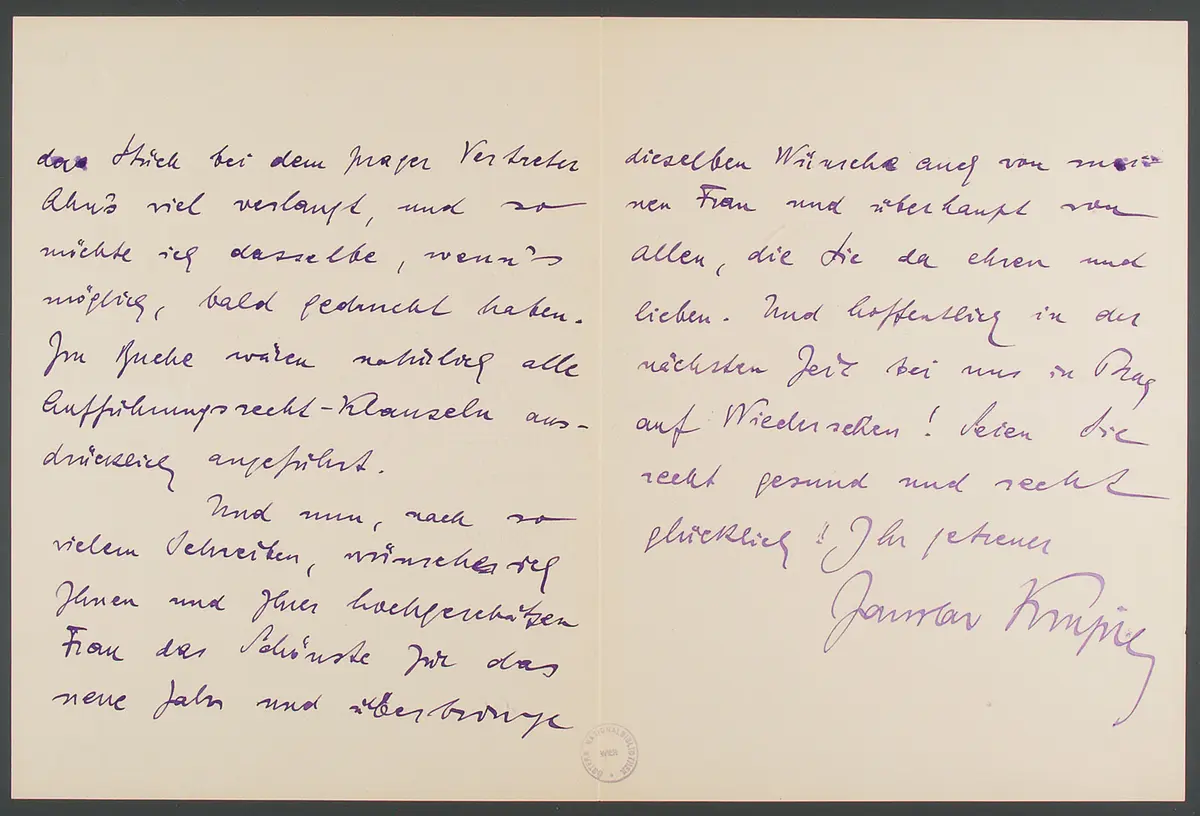 das Stück bei dem prager Vertreter
Ahn's viel verlangt, und so
möchte ich dasselbe, wenn's
möglich, bald gedruckt haben.
Im Buche wären natürlich alle
Aufführungsrecht-Klauseln aus-
drücklich angeführt.
Und nun, nach so
vielem Schreiben, wünsche ich
Ihnen und Ihrer hochgeschätzen
Frau das Schönste für das
neue Jahr und überbringe
dieselben Wünsche auch von mei-
ner Frau und überhaupt von
allen, die Sie da ehren und
lieben. Und hoffentlich in der
nächsten Zeit bei uns in Prag
auf Wiedersehen! Seien Sie
recht gesund und recht
glücklich! Ihr getreuer
Jaroslav Kvapil
NATIONALBIBLIOTHEK
WIEN